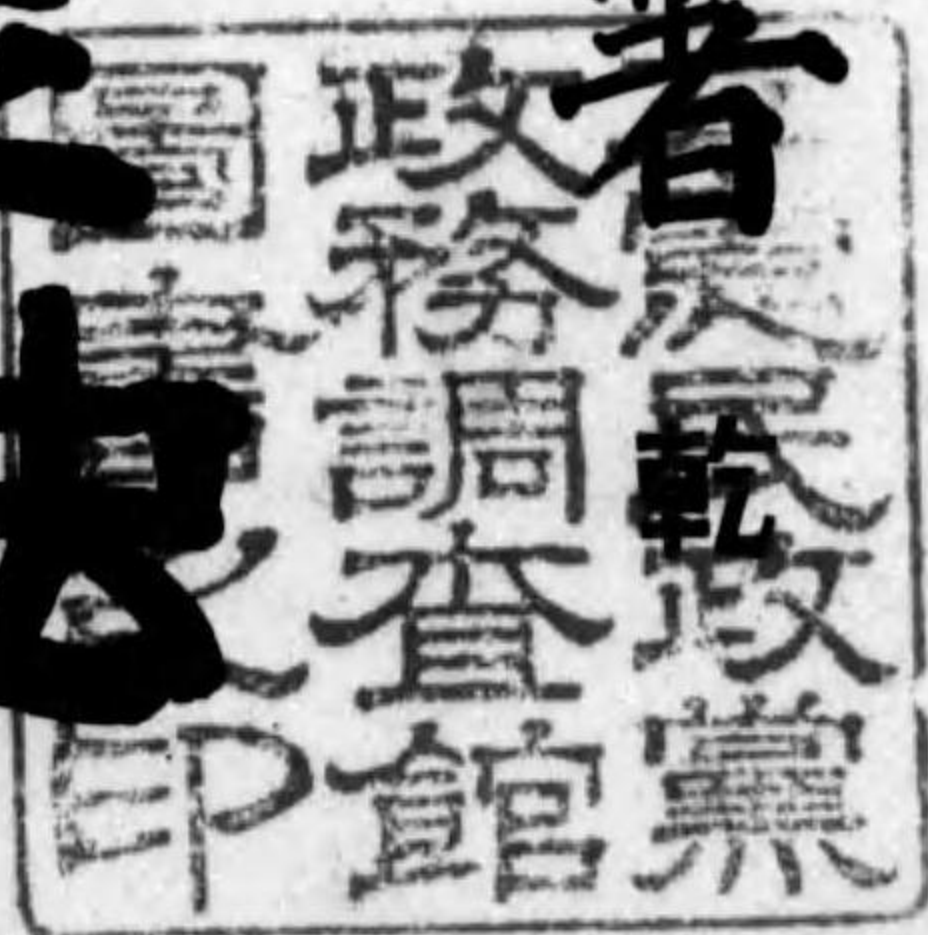 者
乾
民政黨
政務調查館
圖書之印